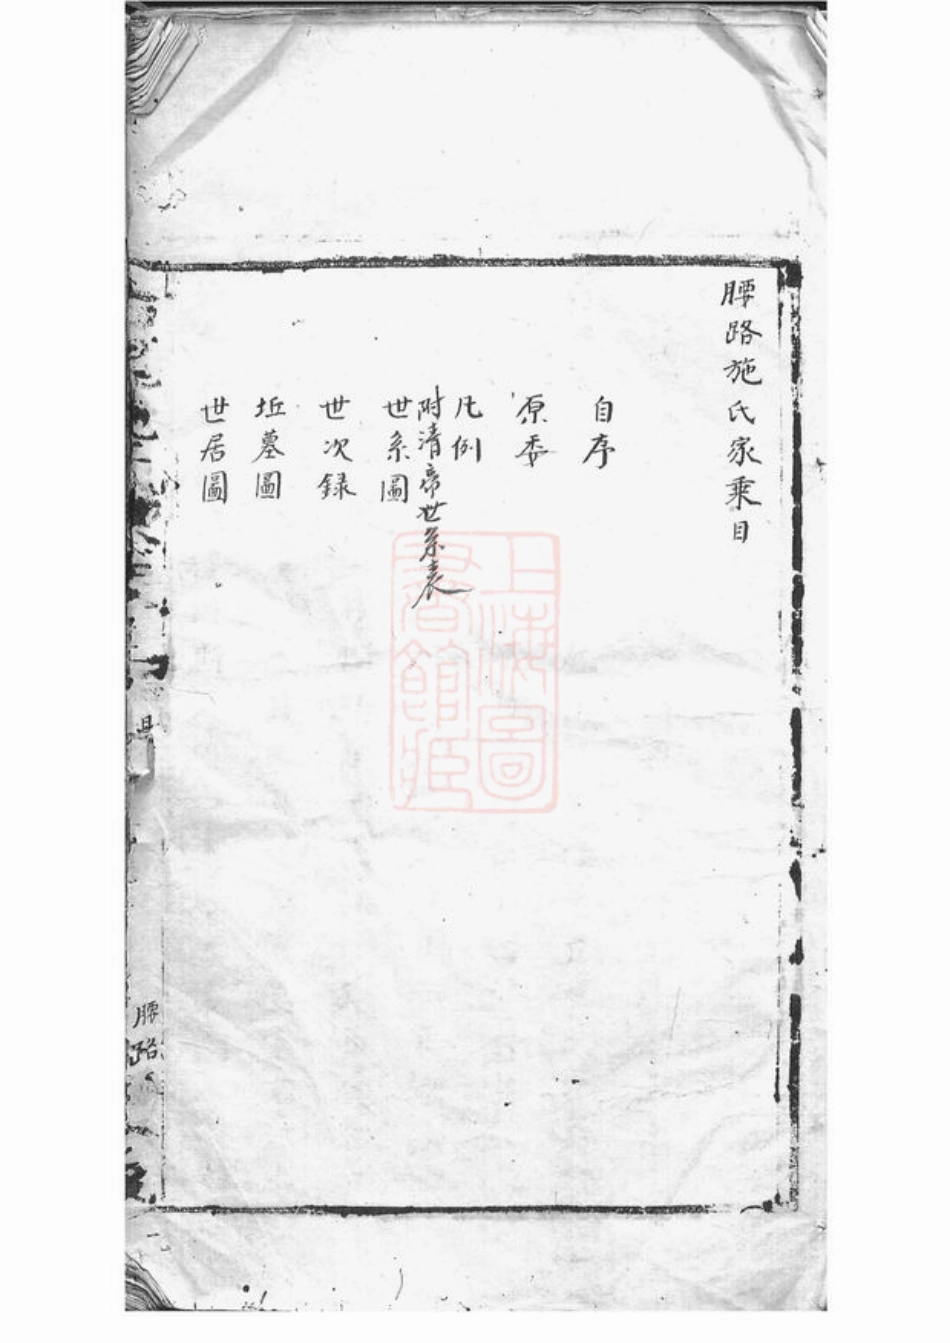 腰路施氏家乘目
自序
原委
凡例
附清帝世系表
世系圖
世次録
坵墓圖
世居圖
上海圖
書館藏
目
腰路